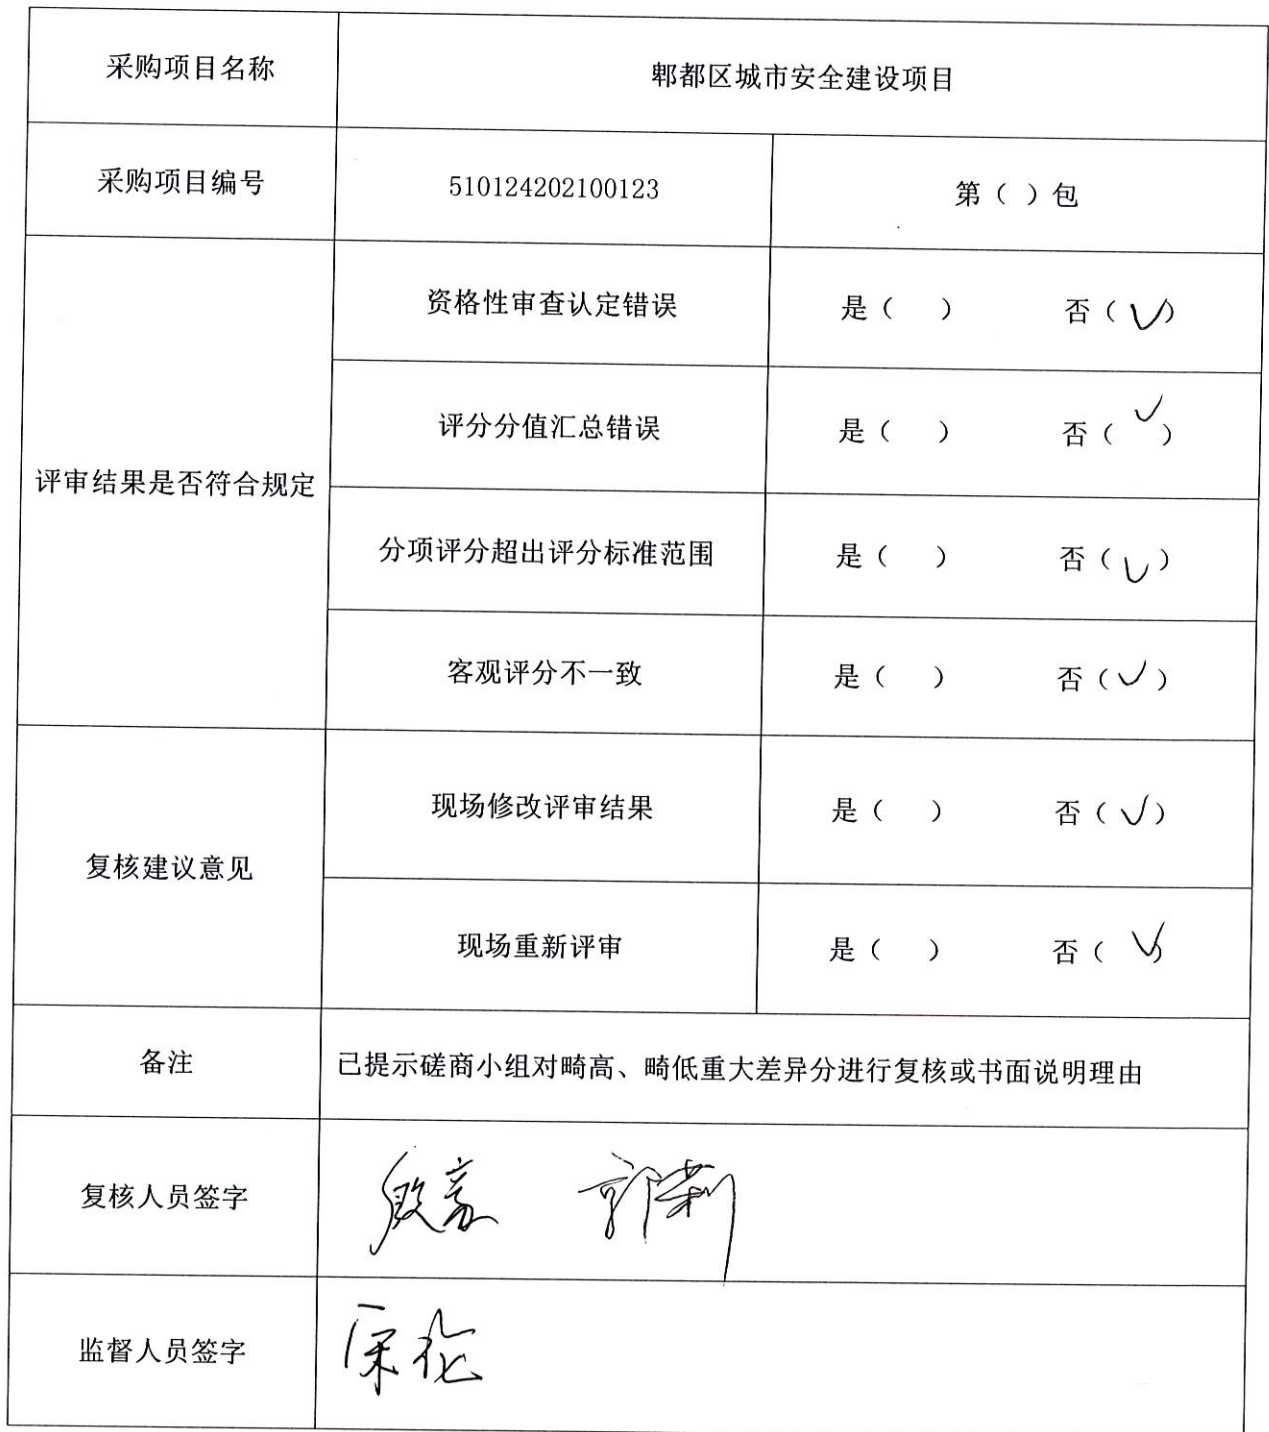 采购项目名称 郫都区城市安全建设项目
采购项目编号 510124202100123 第（ ）包
评审结果是否符合规定
资格性审查认定错误 是（ ） 否（✓）
评分分值汇总错误 是（ ） 否（✓）
分项评分超出评分标准范围 是（ ） 否（✓）
客观评分不一致 是（ ） 否（✓）
复核建议意见
现场修改评审结果 是（ ） 否（✓）
现场重新评审 是（ ） 否（✓）
备注 已提示磋商小组对畸高、畸低重大差异分进行复核或书面说明理由
复核人员签字
监督人员签字